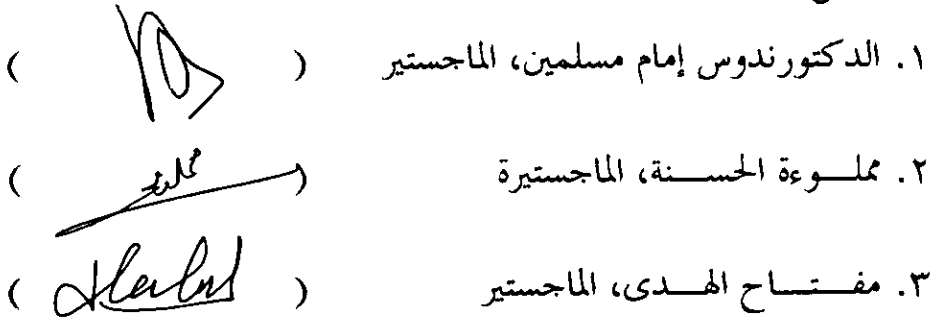 ١. الدكتورندوس إمام مسلمين، الماجستير ( )
٢. مملــوءة الحســـنة، الماجستيرة ( )
٣. مفـــتـــــاح الهـــدى، الماجستير ( )